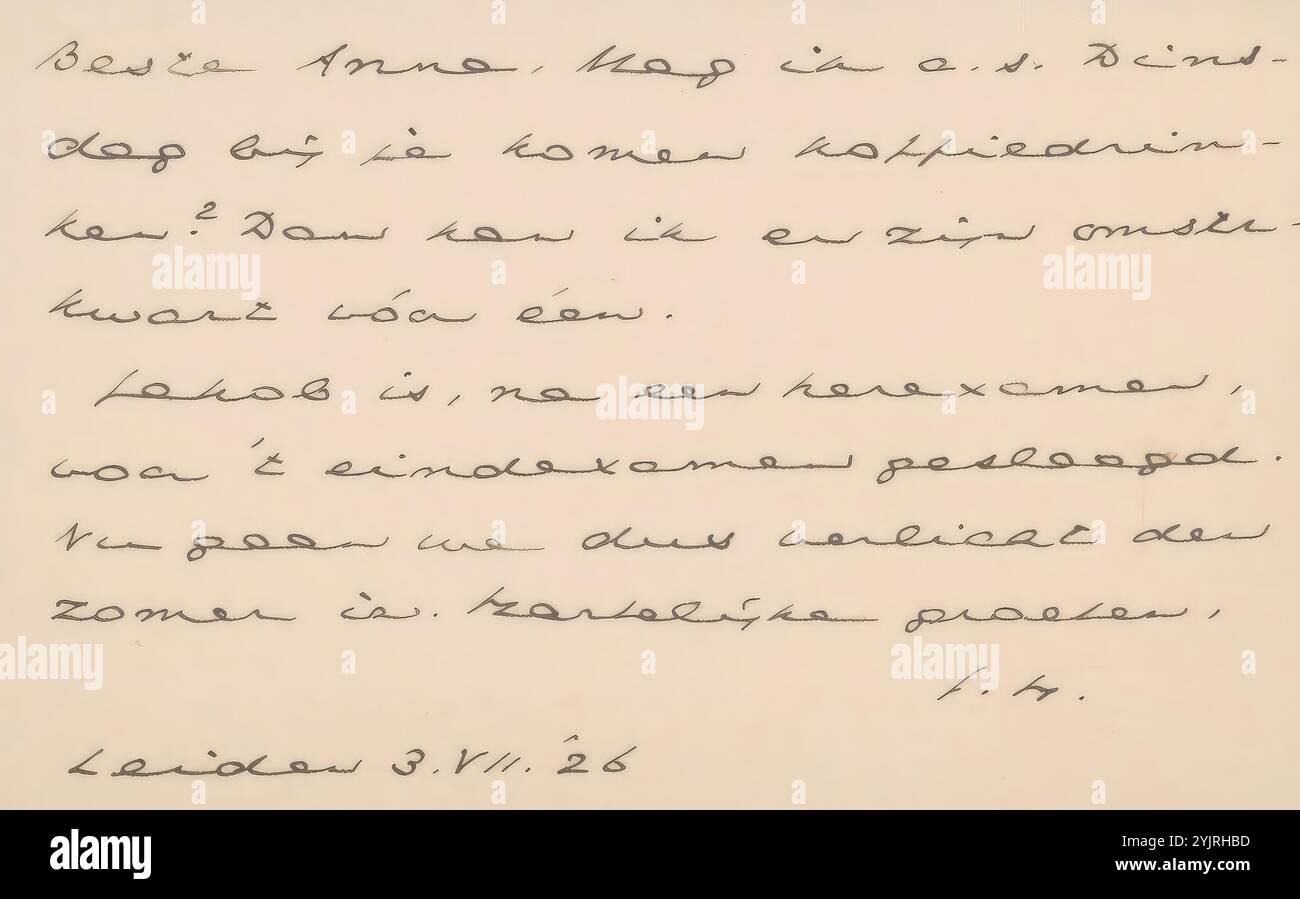 Beste Anna, Mag ik a.s. Dins-
dag bij je komen koffiedrin-
ken? Dan kan ik er zijn omstr.
kwart vóór één.
Jakob is, na een herexamen,
voor 't eindexamen geslaagd.
Nu gaan we dus verlicht den
zomer in. Hartelijke groeten,
J. H.
Leiden 3.VII.'26
alamy
Image ID: 2YJRHBD
www.alamy.com